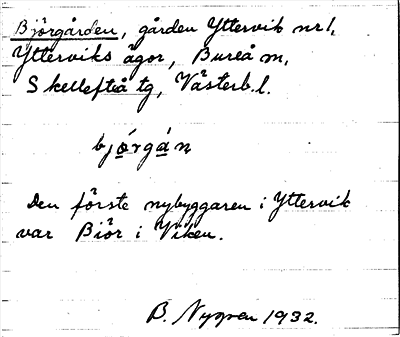 Björgården, gården Yttervik nr 1,
Ytterviks ägor, Bureå m,
Skellefteå tg, Västerb. l.
bjórgán
Den förste nybyggaren i Yttervik
var Biör i Viken.
B. Nygren 1932.